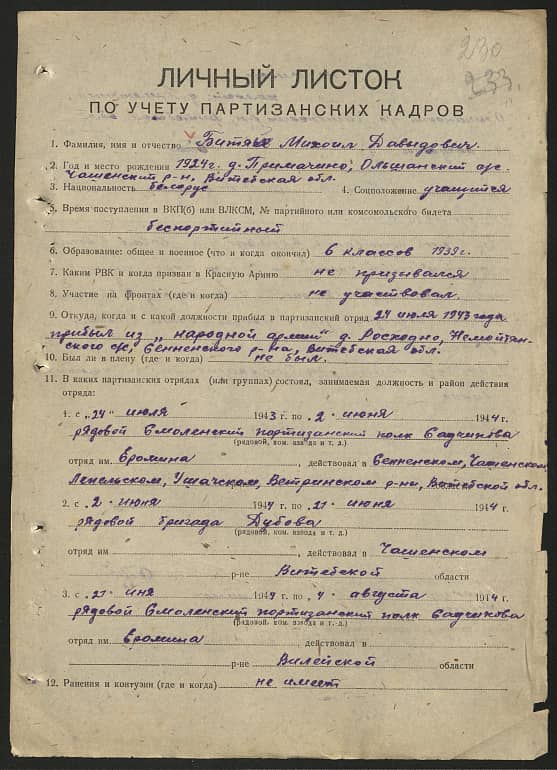 230
233.
ЛИЧНЫЙ ЛИСТОК
ПО УЧЕТУ ПАРТИЗАНСКИХ КАДРОВ
1. Фамилия, имя и отчество Михаил Давыдович
2. Год и место рождения 1924г. д. Примачино, Ольшанский с/с.
Чашенский р-н, Витебская обл.
3. Национальность белорус 4. Соцположение учащийся
5. Время поступления в ВКП(б) или ВЛКСМ, № партийного или комсомольского билета
беспортийный
6. Образование: общее и военное (что и когда окончил) 6 классов 1939г.
7. Каким РВК и когда призван в Красную Армию не призывался
8. Участие на фронтах (где и когда) не участвовал.
9. Откуда, когда и с какой должности прибыл в партизанский отряд 24 июля 1943 года
прибыл из „народной армии" д. Росходно, Немойтян-
ского с/с, Сенненского р-на, Витебская обл.
10. Был ли в плену (где и когда) не был.
11. В каких партизанских отрядах (или группах) состоял, занимаемая должность и район действия
отряда:
1. с „24" июля 1943 г. по „2" июня 1944 г.
рядовой Смоленский портизанский полк Садчикова
(рядовой, ком. взвода и т. д.)
отряд им. Еромина, действовал в Сенненском, Чашенском
Лепельском, Ушачском, Ветринском р-ны, Витебской обл.
2. с „2" июня 1944 г. по „21" июня 1944 г.
рядовой бригада Дубова
(рядовой, ком. взвода и т. д.)
отряд им , действовал в Чашенском
р-не Витебской области
3. с „21" иня 1944 г. по „4" августа 1944 г.
рядовой Смоленский портизанский полк Садчикова
(рядовой, ком. взвода и т. д.)
отряд им. Еромина действовал в
р-не Вилейской области
12. Ранения и контузии (где и когда) не имеет